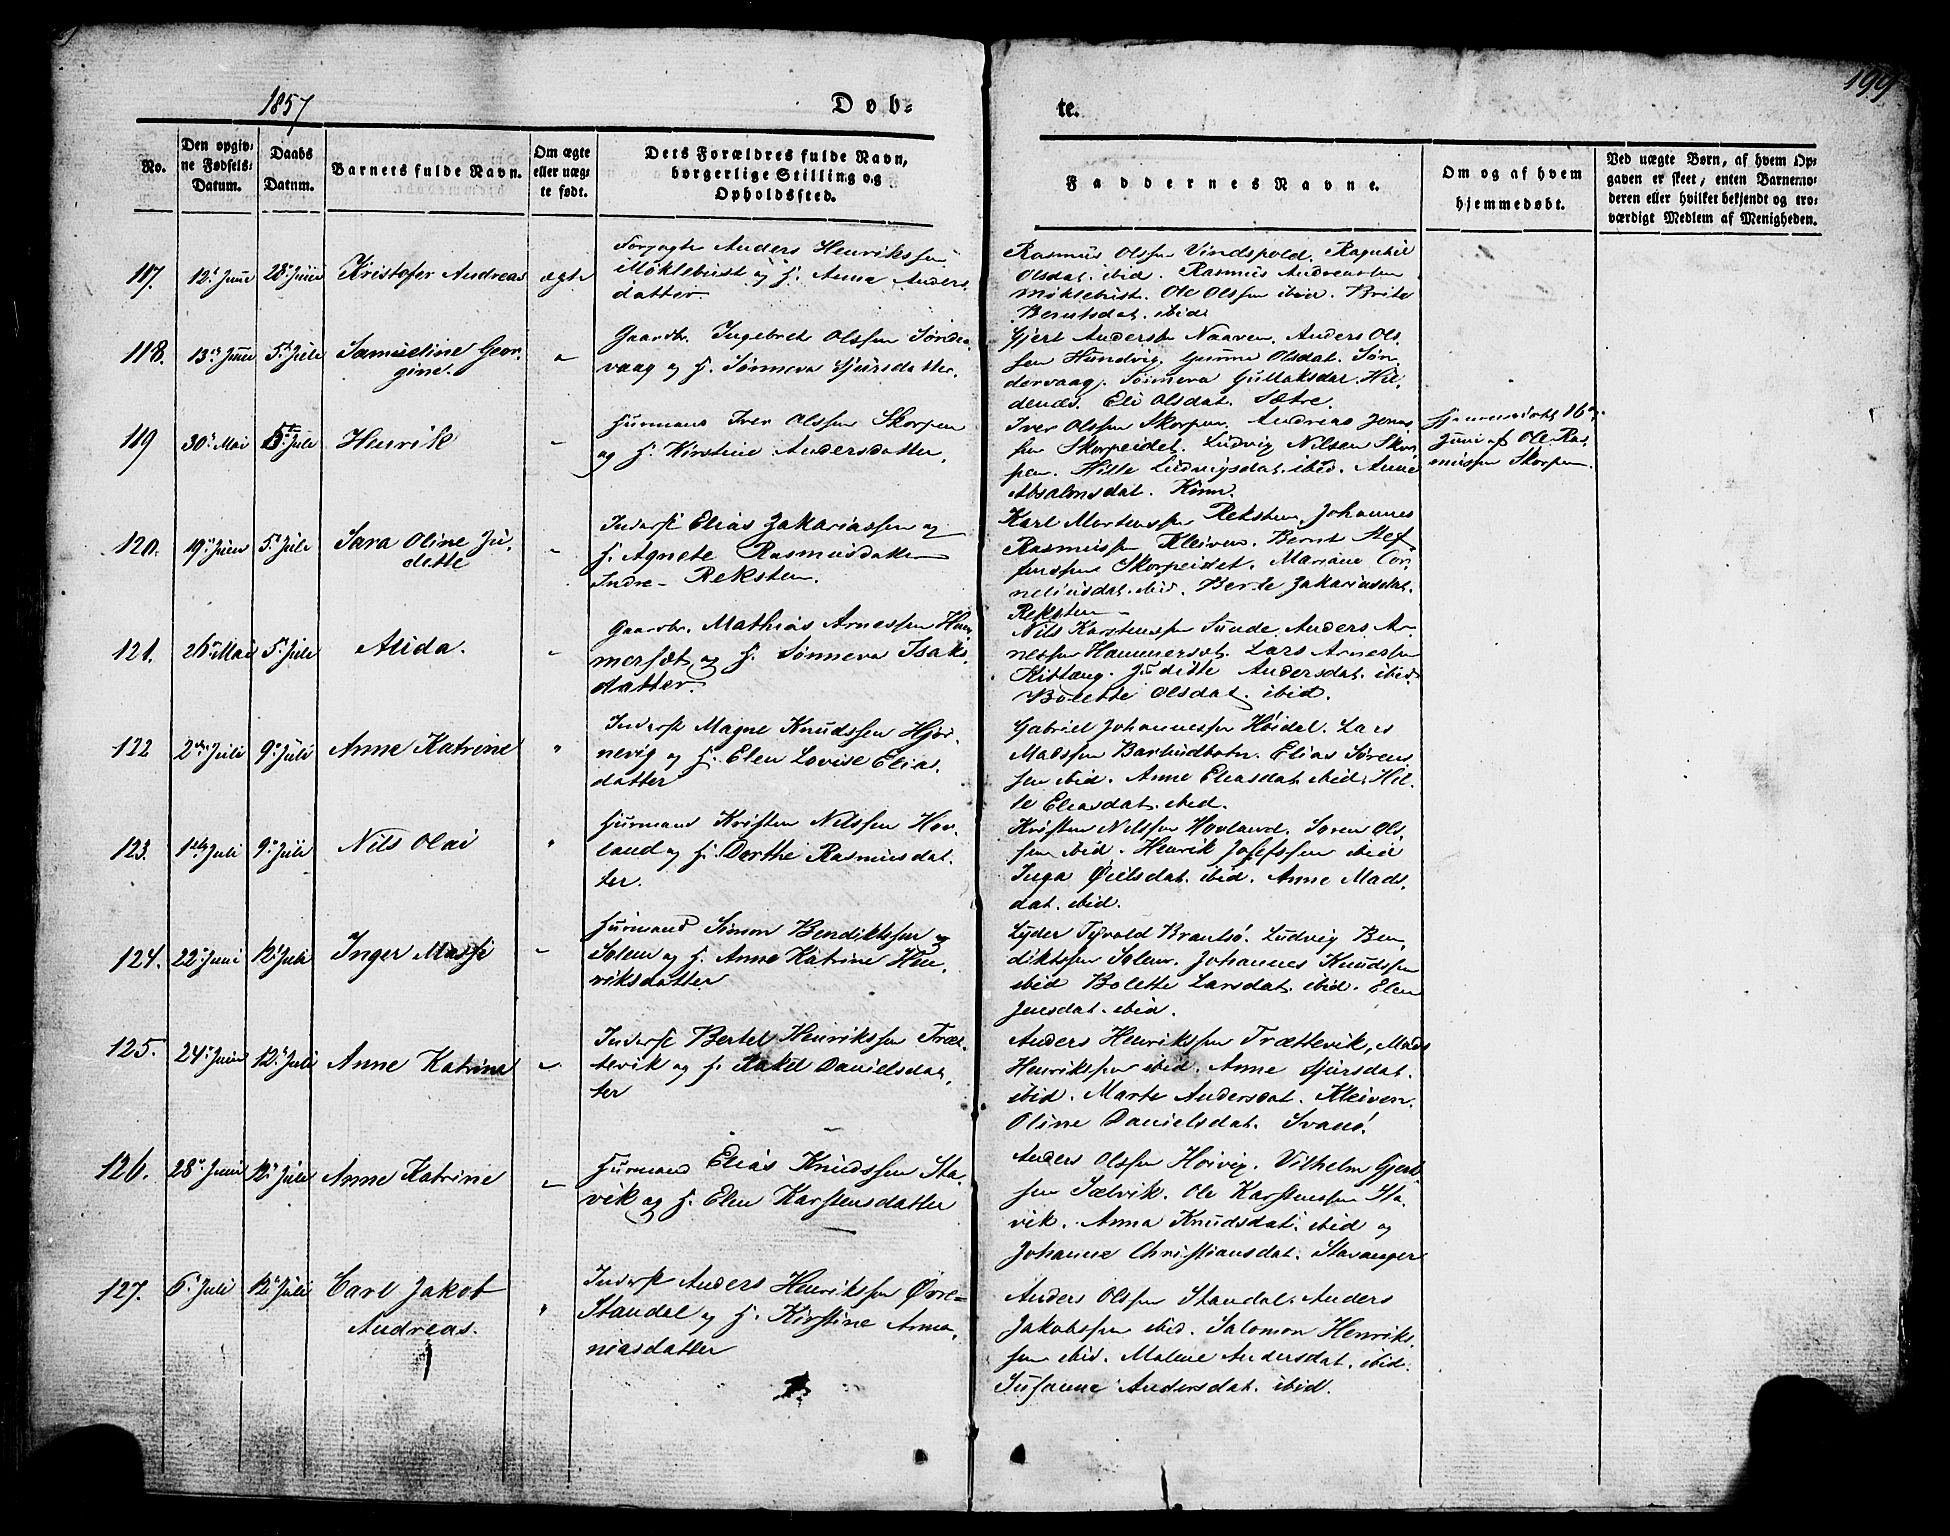 199
1857
Døb-
te.
No.
Den opgiv-
ne Fødsels-
Datum.
Daabs
Datum.
Barnets fulde Navn.
Om ægte
eller uæg-
te født.
Dets Forældres fulde Navn,
borgerlige Stilling og
Opholdssted.
Faddernes Navne.
Om og af hvem
hjemmedøbt.
Ved uægte Børn, af hvem Op-
gaven er skeet, enten Barnemo-
deren eller hvilket bekjendt og tro-
værdigt Medlem af Menigheden.
117. 12te Juni 28de Juni Kristofer Andreas ægte
Forpagter Anders Henrikssen
Møklebust og H. Anna Anders
datter.
Rasmus Olssen Vindspold. Ragnhil
Olsdat. ibid. Rasmus Andreassen
Møklebust. Ole Olssen ibid. Brita
Berntsdat. ibid.
118. 13de Juni 5te Juli Samueline Geor-
gine.
Gaardbr. Ingebret Olssen Sønder-
vaag og H. Sønneva Sjursdatter.
Gjert Anderss Naaven. Anders Ols-
sen Hundvig. Gurine Olsdat. Søn-
dervaag. Sønneva Gullaksdat. Hil-
denæs. Eli Olsdat. Sætre.
119 30te Mai 5te Juli Henrik
Huusmand Iver Olssen Skorpen
og H. Kirstine Andersdatter.
Iver Olssen Skorpen. Andreas Jonas-
sen Skorpeidet. Ludvig Nilsen Skor-
pen. Hille Ludvigsdat. ibid. Anne
Absalonsdat. Kinn.
Hjemmedøbt 16de
Juni af Ole Ras-
mussen Skorpen.
120. 19de Juni 5te Juli Sara Oline Ju-
dette
Inderst Elias Zakariassen og
H. Agnete Rasmusdatter
Indre-Reksten.
Karl Mortenssen Reksten. Johannes
Rasmussen Kleiven. Bernt Stef-
fenssen Skorpeidet. Mariane Cor-
neliusdat. ibid. Berte Zakariasdat.
Reksten
121. 26de Mai 5te Juli Alida.
Gaardbr. Mathias Arnessen Ham-
mersæt og H. Sønneva Isaks-
datter.
Nils Karstenssen Sunde. Anders Ar-
nessen Hammerset. Lars Arnessen
Kistang. Juditte Andersdat. ibid.
Bolette Olsdat. ibid.
122 2den Juli 9de Juli Anne Katrine "
Inderst Magne Knudssen Hjor-
nevig og H. Elen Lovise Elias-
datter
Gabriel Johannessen Høidal. Lars
Madssen Barlindbotn. Elias Sørens-
sen ibid. Anne Eliasdat. ibid. Hil-
le Eliasdat. ibid.
123. 1ste Juli 9de Juli Nils Olai "
Huusmand Kristen Nilssen Hov-
land og H. Dorthe Rasmusdat-
ter.
Kristen Nilssen Hovland. Søren Ols-
sen ibid. Henrik Josefssen ibid
Inga Øielsdat. ibid. Anne Mads-
dat. ibid.
124. 22de Juni 12te Juli Inger Massi
Huusmand Simon Bendiktssen
Solem og H. Anne Katrine Hen-
riksdatter
Lyder Tyvold Brantsø. Ludvig Ben-
diktssen Solem. Johannes Knudssen
ibid Bolette Larsdat. ibid. Elen
Jensdat. ibid.
125. 24de Juni 12te Juli Anne Katrine
Inderst Bertel Henrikssen Træt-
tevik og H. Rakel Danielsdat-
ter
Anders Henrikssen Trættevik, Mads
Henrikssen ibid. Anne Sjursdat.
ibid. Marte Andersdat. Kleiven.
Oline Danielsdat. Svanø.
126. 28de Juni 12te Juli Anne Katrine
Huusmand Elias Knudssen Sta-
vik og H. Elen Karstensdatter
Anders Olssen Høivig. Vilhelm Gjert-
sen Sælvik. Ole Karstenssen Sta-
vik. Anna Knudsdat. ibid og
Johanne Christiansdat. Stavanger
127. 6te Juli 12te Juli Carl Jakob "
Andreas.
Inderst Anders Henrikssen Øvre-
Standal og H. Kirstine Anna-
niasdatter
Anders Olssen Standal. Anders
Jakobssen ibid. Salomon Henriks-
sen ibid. Malene Andersdat. ibid.
Susanne Andersdat. ibid.